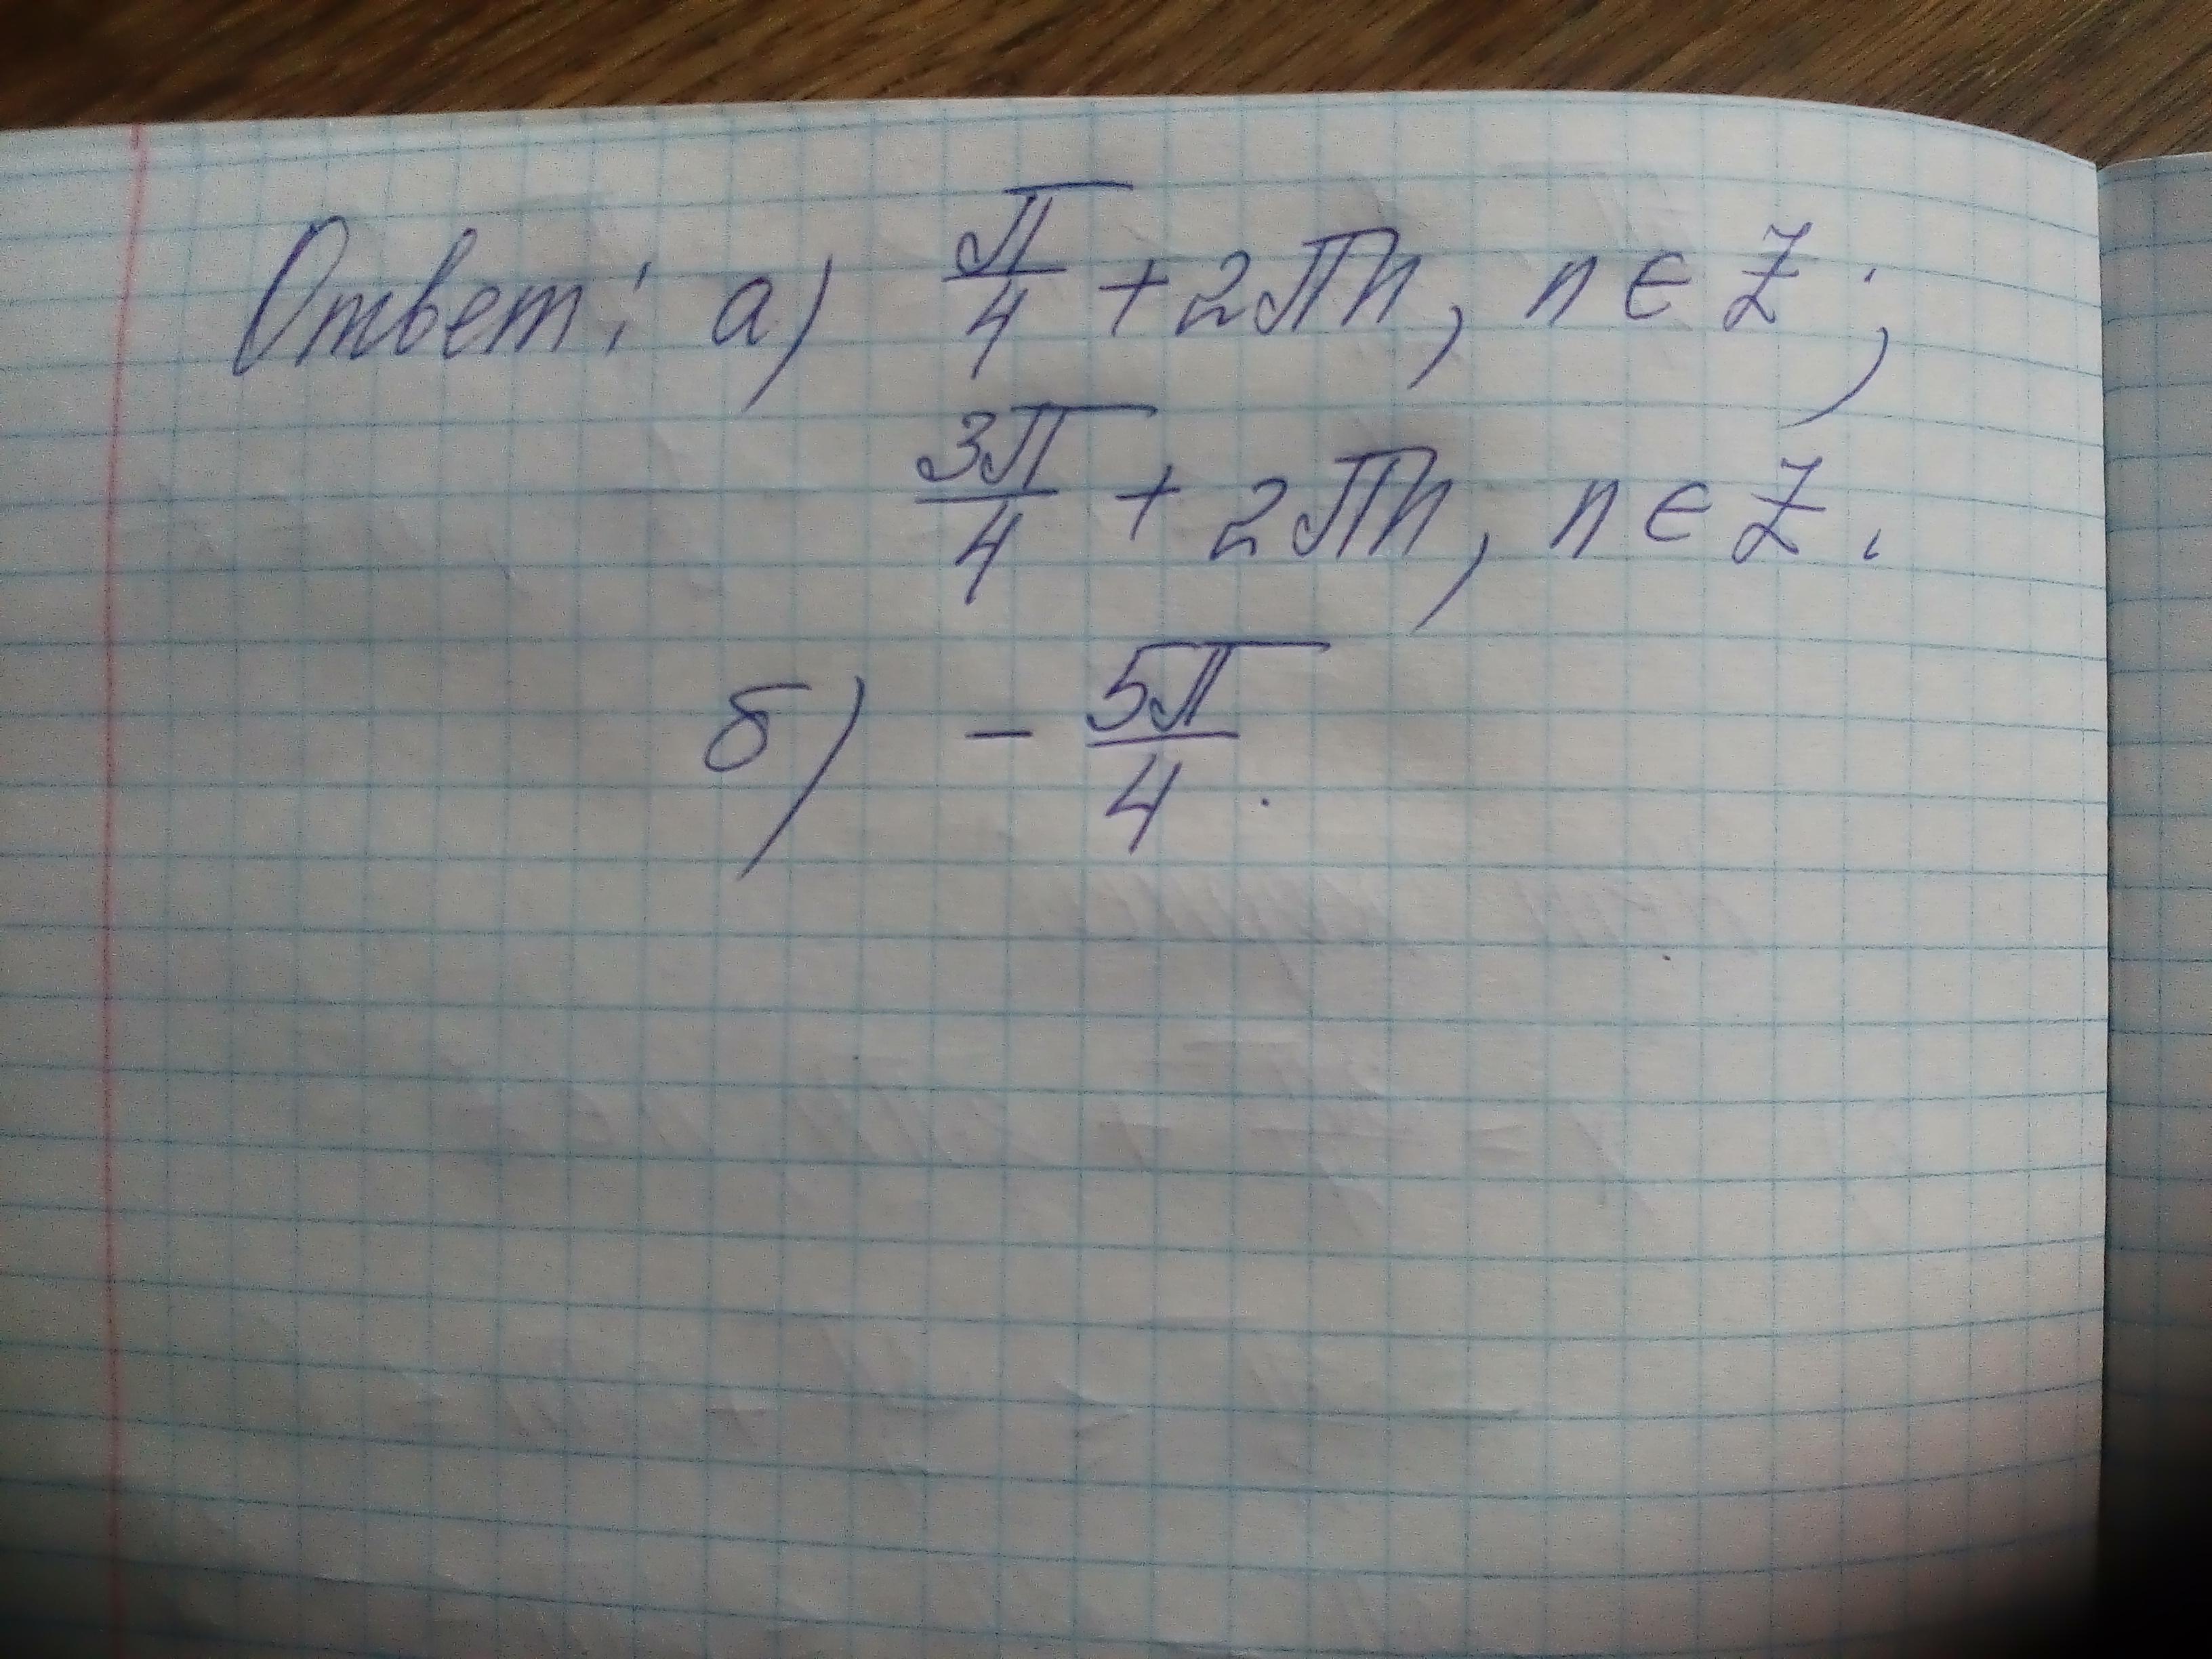 Ответ: а) π/4 + 2πn, n ∈ Z;
3π/4 + 2πn, n ∈ Z.
б) - 5π/4.